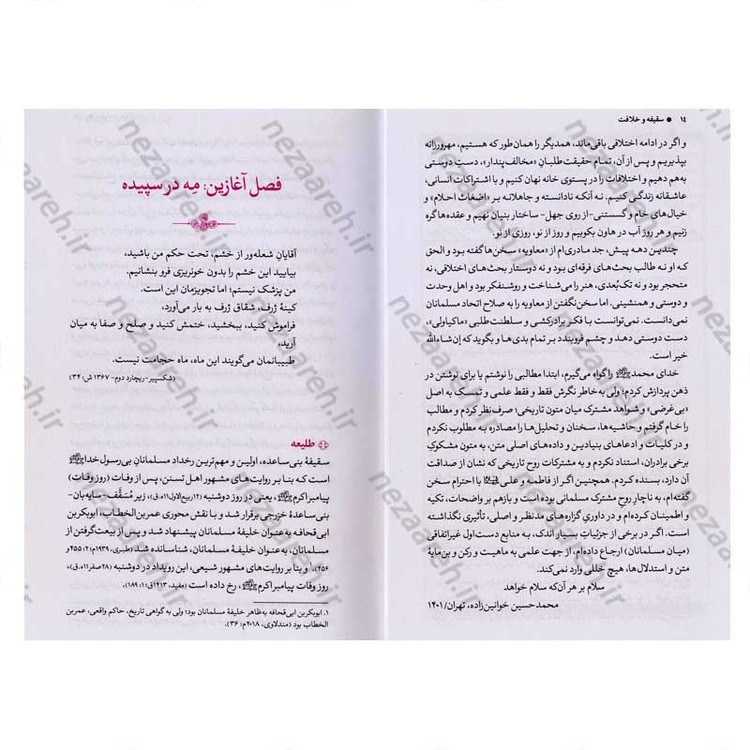 ۱۴ ● سقیفه و خلافت
و اگر در ادامه اختلافی باقی‌ماند، همدیگر را همان‌طور که هستیم، مهرورزانه
بپذیریم و پس از آن، تمام حقیقت‌طلبانِ «مخالف‌پندار»، دستِ دوستی
به‌هم دهیم و اختلافات را در پستوی خانه نهان کنیم و با اشتراکات انسانی،
عاشقانه زندگی کنیم. نه آنکه نادانسته و جاهلانه بر «اضغاث احلام» و
خیال‌های خام و گسستنی -از روی جهل- ساختار بنیان نهیم و عقده‌ها گره
زنیم و هر روز آب در هاون بکوبیم و روز از نو، روزی از نو.
چندین دهه پیش، جد مادری‌ام از «معاویه» سخن‌ها گفته بود و الحق
که او نه طالب بحث‌های فرقه‌ای بود و نه دوستار بحث‌های اختلافی، نه
متحجر بود و نه تک‌بُعدی، هنر را می‌شناخت و روشنفکر بود و اهل وحدت
و دوستی و همنشینی. اما سخن‌نگفتن از معاویه را به صلاح اتحاد مسلمانان
نمی‌دانست. نمی‌توانست با فکرِ برادرکشی و سلطنت‌طلبیِ «ماکیاولی»،
دست دوستی دهد و چشم فروبندد بر تمام بدی‌ها و بگوید که إن‌شاءالله
خیر است.
خدای محمد را گواه می‌گیرم، ابتدا مطالبی را نوشتم یا برای نوشتن در
ذهن پردازش کردم؛ ولی به‌خاطر نگرش فقط و فقط علمی و تمسک به اصل
«بی‌غرضی» و شواهد مشترک میان متون تاریخی؛ صرف‌نظر کردم و مطالب
را خام گفتم و حاشیه‌ها، سخنان و تحلیل‌ها را مصادره به مطلوب نکردم
و در کلیات و ادعاهای بنیادین و داده‌های اصلی متن، به متون مشکوکِ
برخی برادران، استناد نکردم و به مشترکات تاریخی که نشان از صداقت
آن دارد، بسنده کردم. همچنین اگر از فاطمه و علی با احترام سخن
گفته‌ام، به ناچار روح مشترک مسلمانی بوده است و بازهم بر واضحات، تکیه
و اطمینان کرده‌ام و در داوریِ گزاره‌های مدنظر و اصلی، تأثیری نگذاشته
است. اگر در برخی از جزئیاتِ بسیار اندک، به منابع دست‌اول غیراتفاقی
(میان مسلمانان) ارجاع داده‌ام، از جهت علمی به ماهیت و رکن و بن‌مایۀ
متن و استدلال‌ها، هیچ خللی وارد نمی‌کند.
سلام بر هر آن‌که سلام خواهد
محمدحسین خوانین‌زاده، تهران/۱۴۰۱
فصل آغازین: مِه در سپیده
آقایانِ شعله‌ور از خشم، تحت حکم من باشید،
بیایید این خشم را بدون خونریزی فرو بنشانیم.
من پزشک نیستم؛ اما تجویزمان این است.
کینۀ ژرف، شقاق ژرف به بار می‌آورد،
فراموش کنید، ببخشید، ختمش کنید و صلح و صفا به میان
آرید،
طبیبانمان می‌گویند این ماه، ماه حجامت نیست.
(شکسپیر-ریچارد دوم-۱۳۶۷ ش: ۳۴)
طلیعه
سقیفۀ بنی‌ساعده، اولین و مهم‌ترین رخداد مسلمانانِ بی‌رسول خدا
است که بنا بر روایت‌های مشهور اهل تسنن، پس از (روز وفات)
پیامبر اکرم، یعنی در روز دوشنبه (۱۲ربیع‌الاول۱۱ه‍.ق)، زیر مُسَقَّف-سایه‌بان-
بنی‌ساعدۀ خزرجی برقرار شد و با نقش محوری عمربن‌الخطاب، ابوبکربن
ابی‌قحافه به‌عنوان خلیفۀ مسلمانان پیشنهاد شد و پس از بیعت‌گرفتن از
مسلمانان، به‌عنوان خلیفۀ مسلمانان، شناسانده شد (طبری، ۱۹۳۹م، ۲: ۴۵۵ و
۴۵۶)۱ و بنا بر روایت‌های مشهور شیعی، این رویداد در دوشنبه (۲۸صفر۱۱ه‍.ق)،
روز وفات پیامبر اکرم، رخ داده است (مفید، ۱۴۱۳ق، ۱: ۱۸۹).
۱. ابوبکربن ابی‌قحافه به‌ظاهر خلیفۀ مسلمانان بود؛ ولی به گواهی تاریخ، حاکم واقعی، عمربن
الخطاب بود (مندلاوی، ۲۰۱۸م: ۳۶).
nezaareh.ir